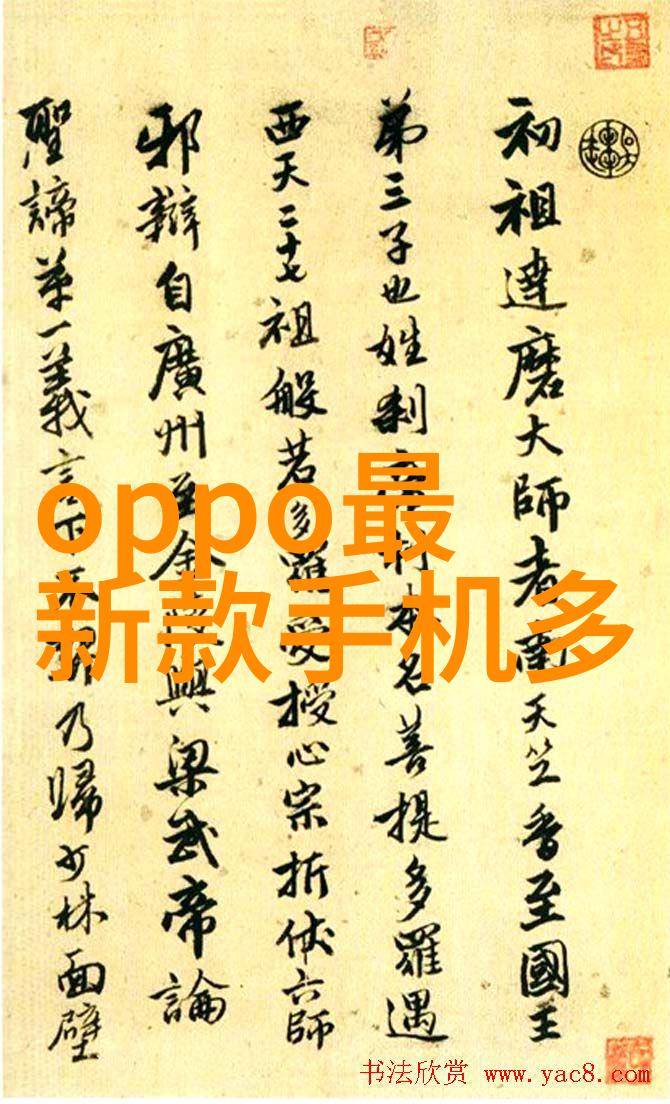 初祖達磨大師者南天竺香至國王
第三子也姓刹帝利本名菩提多羅遇
西天二十七祖般若多羅受授心宗折伏六師
邪辯自廣州至金陵興梁武帝論
聖諦第一義言下不契乃歸少林面壁
oppo最
新款手机多
书法欣赏 www.yac8.com